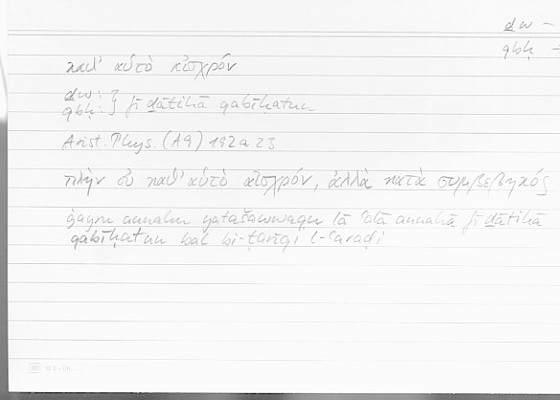 ḏw –
qbḥ –
καθ' αὑτὸ αἰσχρόν
ḏw :
qbḥ : } fī ḏātihā qabīḥatun
Arist. Phys. (A9) 192a23
πλὴν οὐ καθ' αὑτὸ αἰσχρόν, ἀλλὰ κατὰ συμβεβηκός
ġayru annahu yatašawwaqu lā ʿalā annahā fī ḏātihā
qabīḥatun bal bi-ṭarīqi l-ʿaraḍi